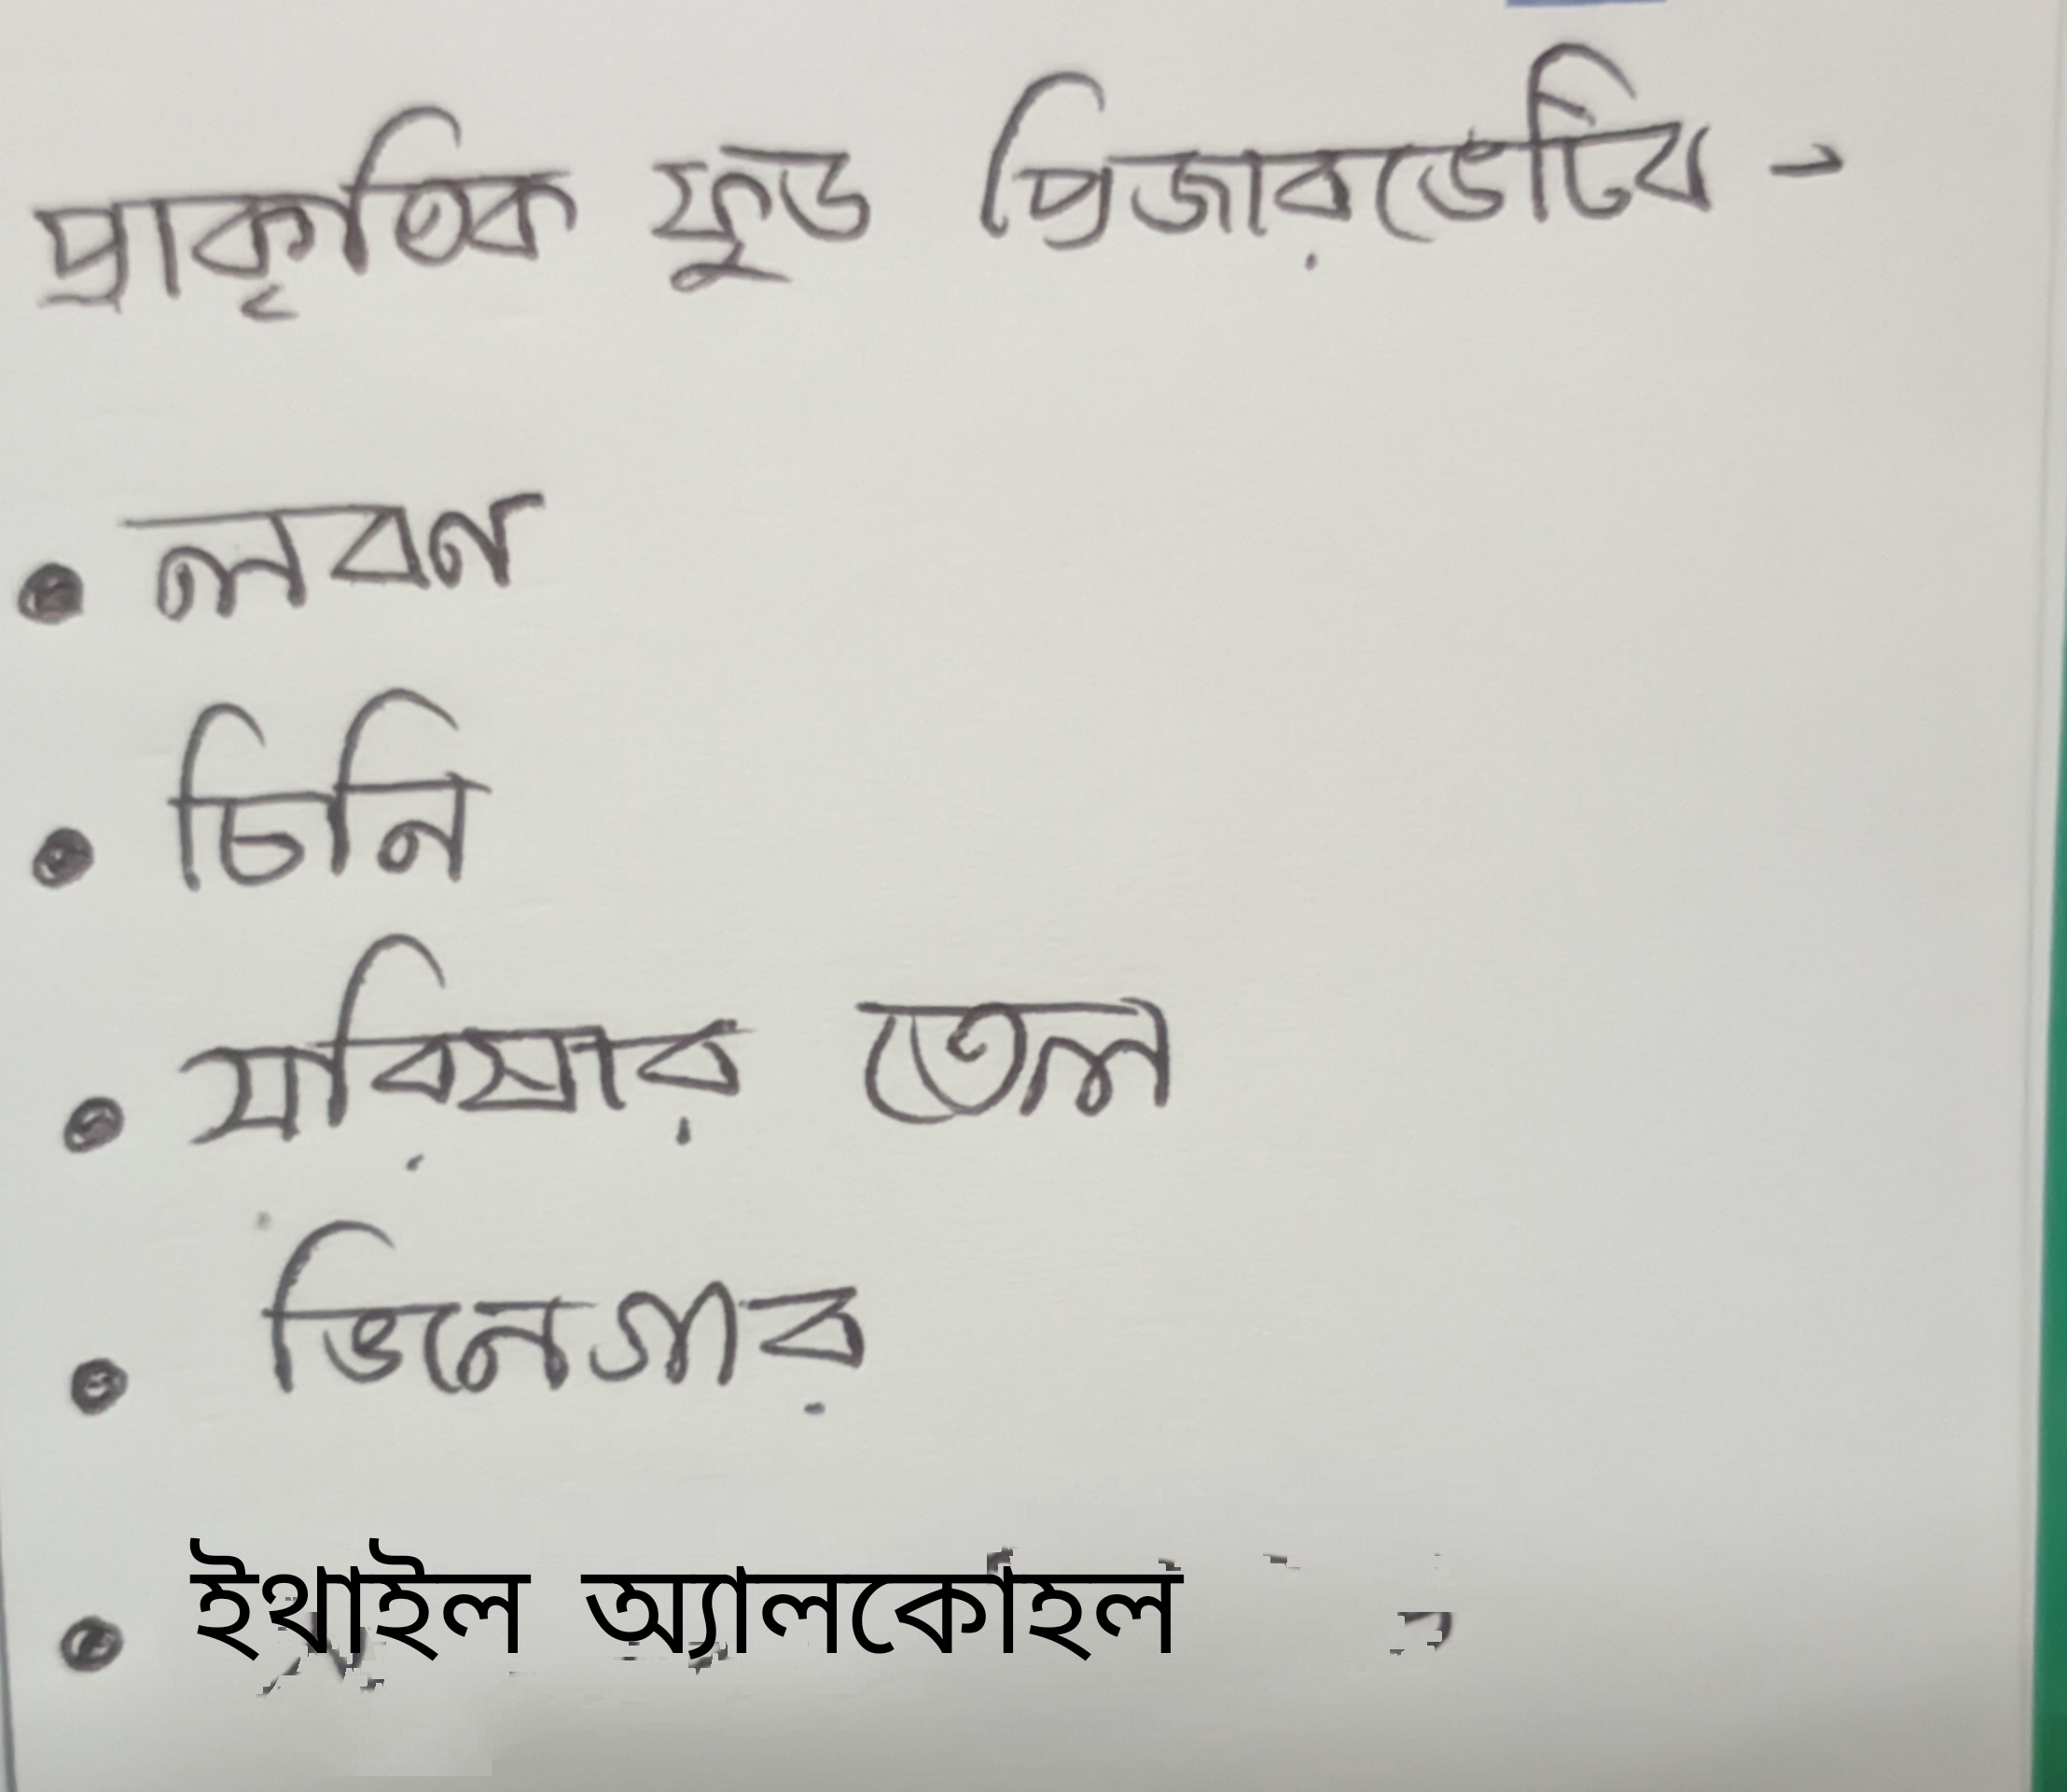 প্রাকৃতিক ফুড প্রিজারভেটিব -
• লবণ
• চিনি
• সরিষার তেল
• ভিনেগার
• ইথাইল অ্যালকোহল